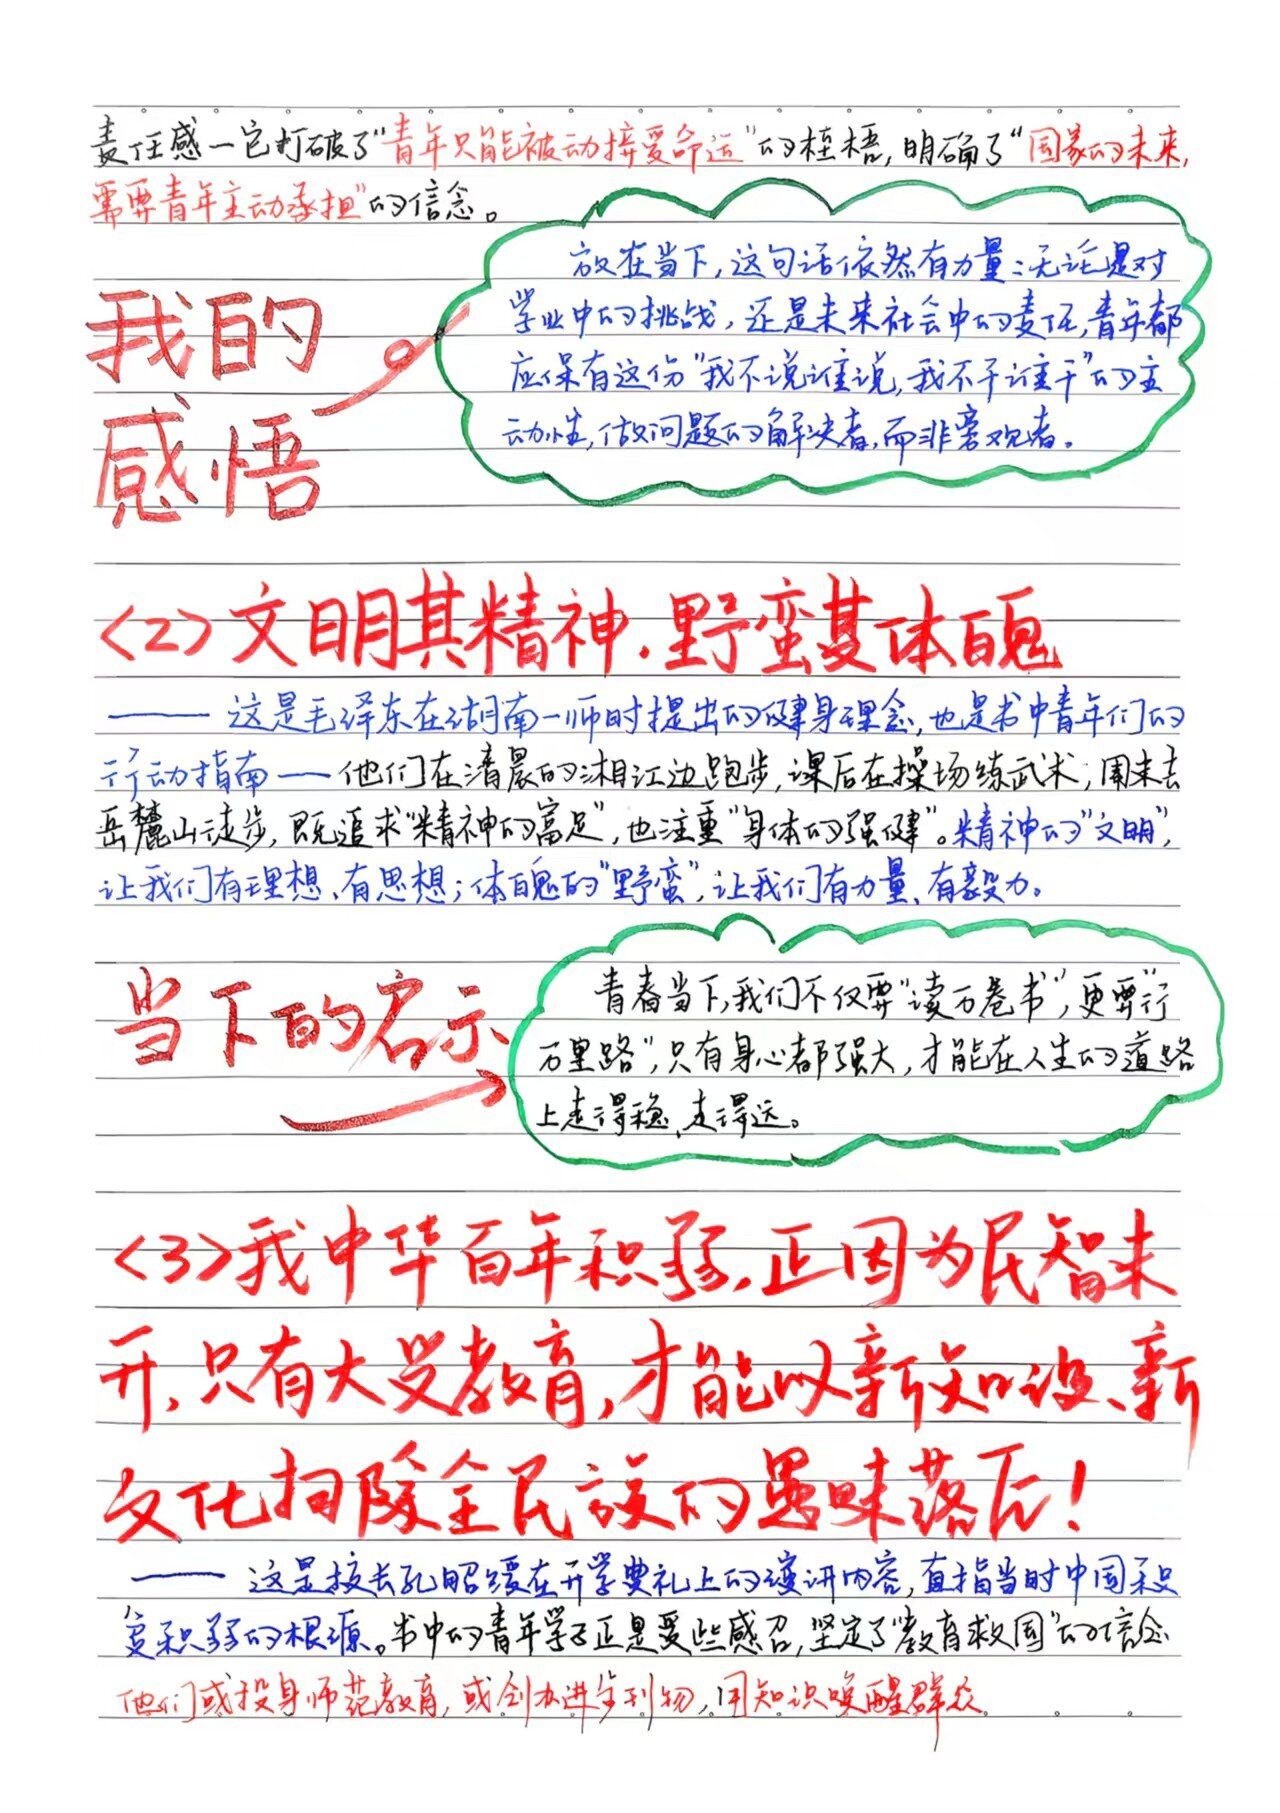 责任感一它打破了“青年只能被动接受命运”的桎梏,明确了“国家的未来,
需要青年主动承担”的信念。
放在当下,这句话依然有力量:无论是对
学业中的挑战,还是未来社会中的责任,青年都
应保有这份“我不说谁说,我不干谁干”的主
动性,做问题的解决者,而非旁观者。
我的
感悟
<2>文明其精神.野蛮其体魄
——这是毛泽东在湖南一师时提出的健身理念,也是书中青年们的
行动指南——他们在清晨的湘江边跑步,课后在操场练武术,周末去
岳麓山徒步,既追求“精神的富足”,也注重“身体的强健”。精神的“文明”,
让我们有理想、有思想;体魄的“野蛮”,让我们有力量、有毅力。
当下的启示
青春当下,我们不仅要“读万卷书”,更要“行
万里路”,只有身心都强大,才能在人生的道路
上走得稳、走得远。
<3>我中华百年积弱,正因为民智未
开,只有大受教育,才能以新知识、新
文化扫除全民族的愚昧落后!
——这是校长孔昭绶在开学典礼上的演讲内容,直指当时中国积
贫积弱的根源。书中的青年学子正是受些感召,坚定了“教育救国”的信念
他们或投身师范教育,或创办进步刊物,用知识唤醒群众